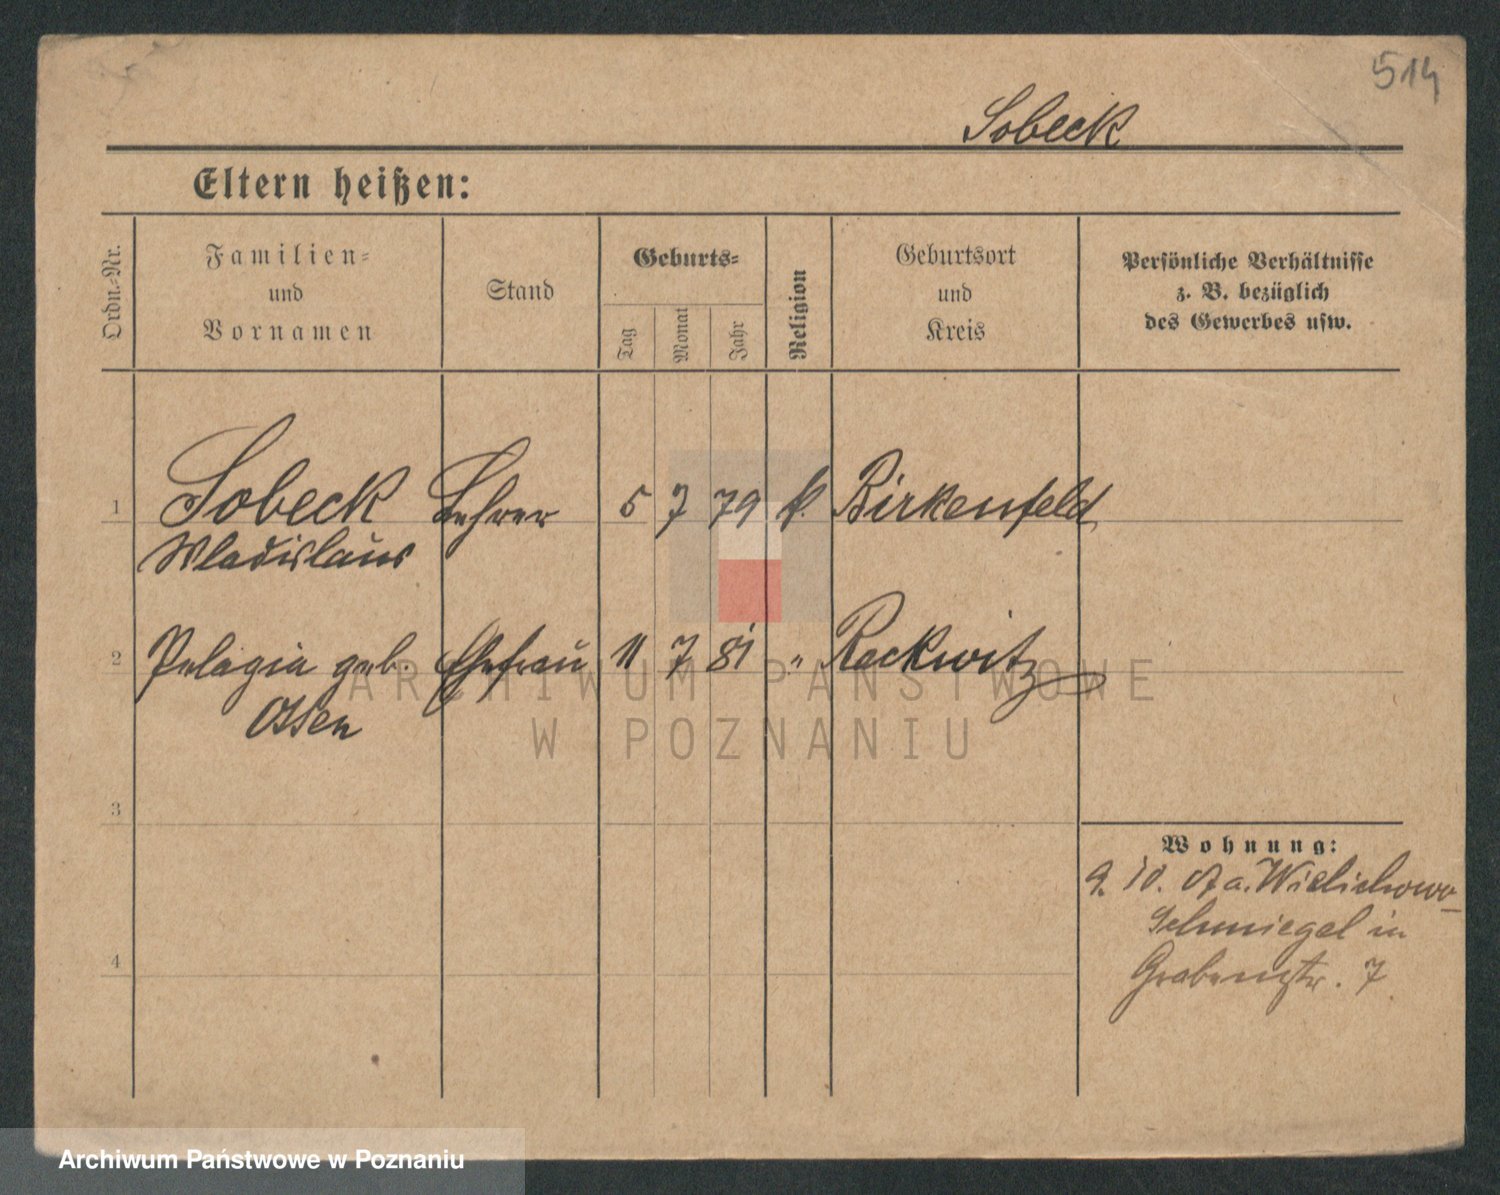 514
Sobeck
Eltern heißen:
Ordn.-Nr.
Familien-
und
Vornamen
Stand
Geburts-
Tag
Monat
Jahr
Religion
Geburtsort
und
Kreis
Persönliche Verhältnisse
z. B. bezüglich
des Gewerbes usw.
1 Sobeck Lehrer 5 7 79 k. Birkenfeld
Wladislaus
2 Pelagia geb. Ehefrau 11 7 81 " Rackwitz
Ossen
ARCHIWUM PAŃSTWOWE
W POZNANIU
3
Wohnung:
9. 10. a. Wielichowo
Schmiegel in
4
Grabenstr. 7
Archiwum Państwowe w Poznaniu